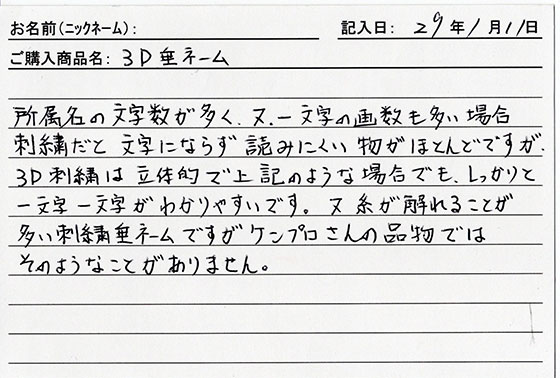 お名前(ニックネーム): 記入日: 29年1月11日
ご購入商品名: 3D垂ネーム
所属名の文字数が多く、又、一文字の画数も多い場合
刺繍だと文字にならず読みにくい物がほとんどですが、
3D刺繍は立体的で上記のような場合でも、しっかりと
一文字一文字がわかりやすいです。又糸が解れることが
多い刺繍垂ネームですがケンプロさんの品物では
そのようなことがありません。